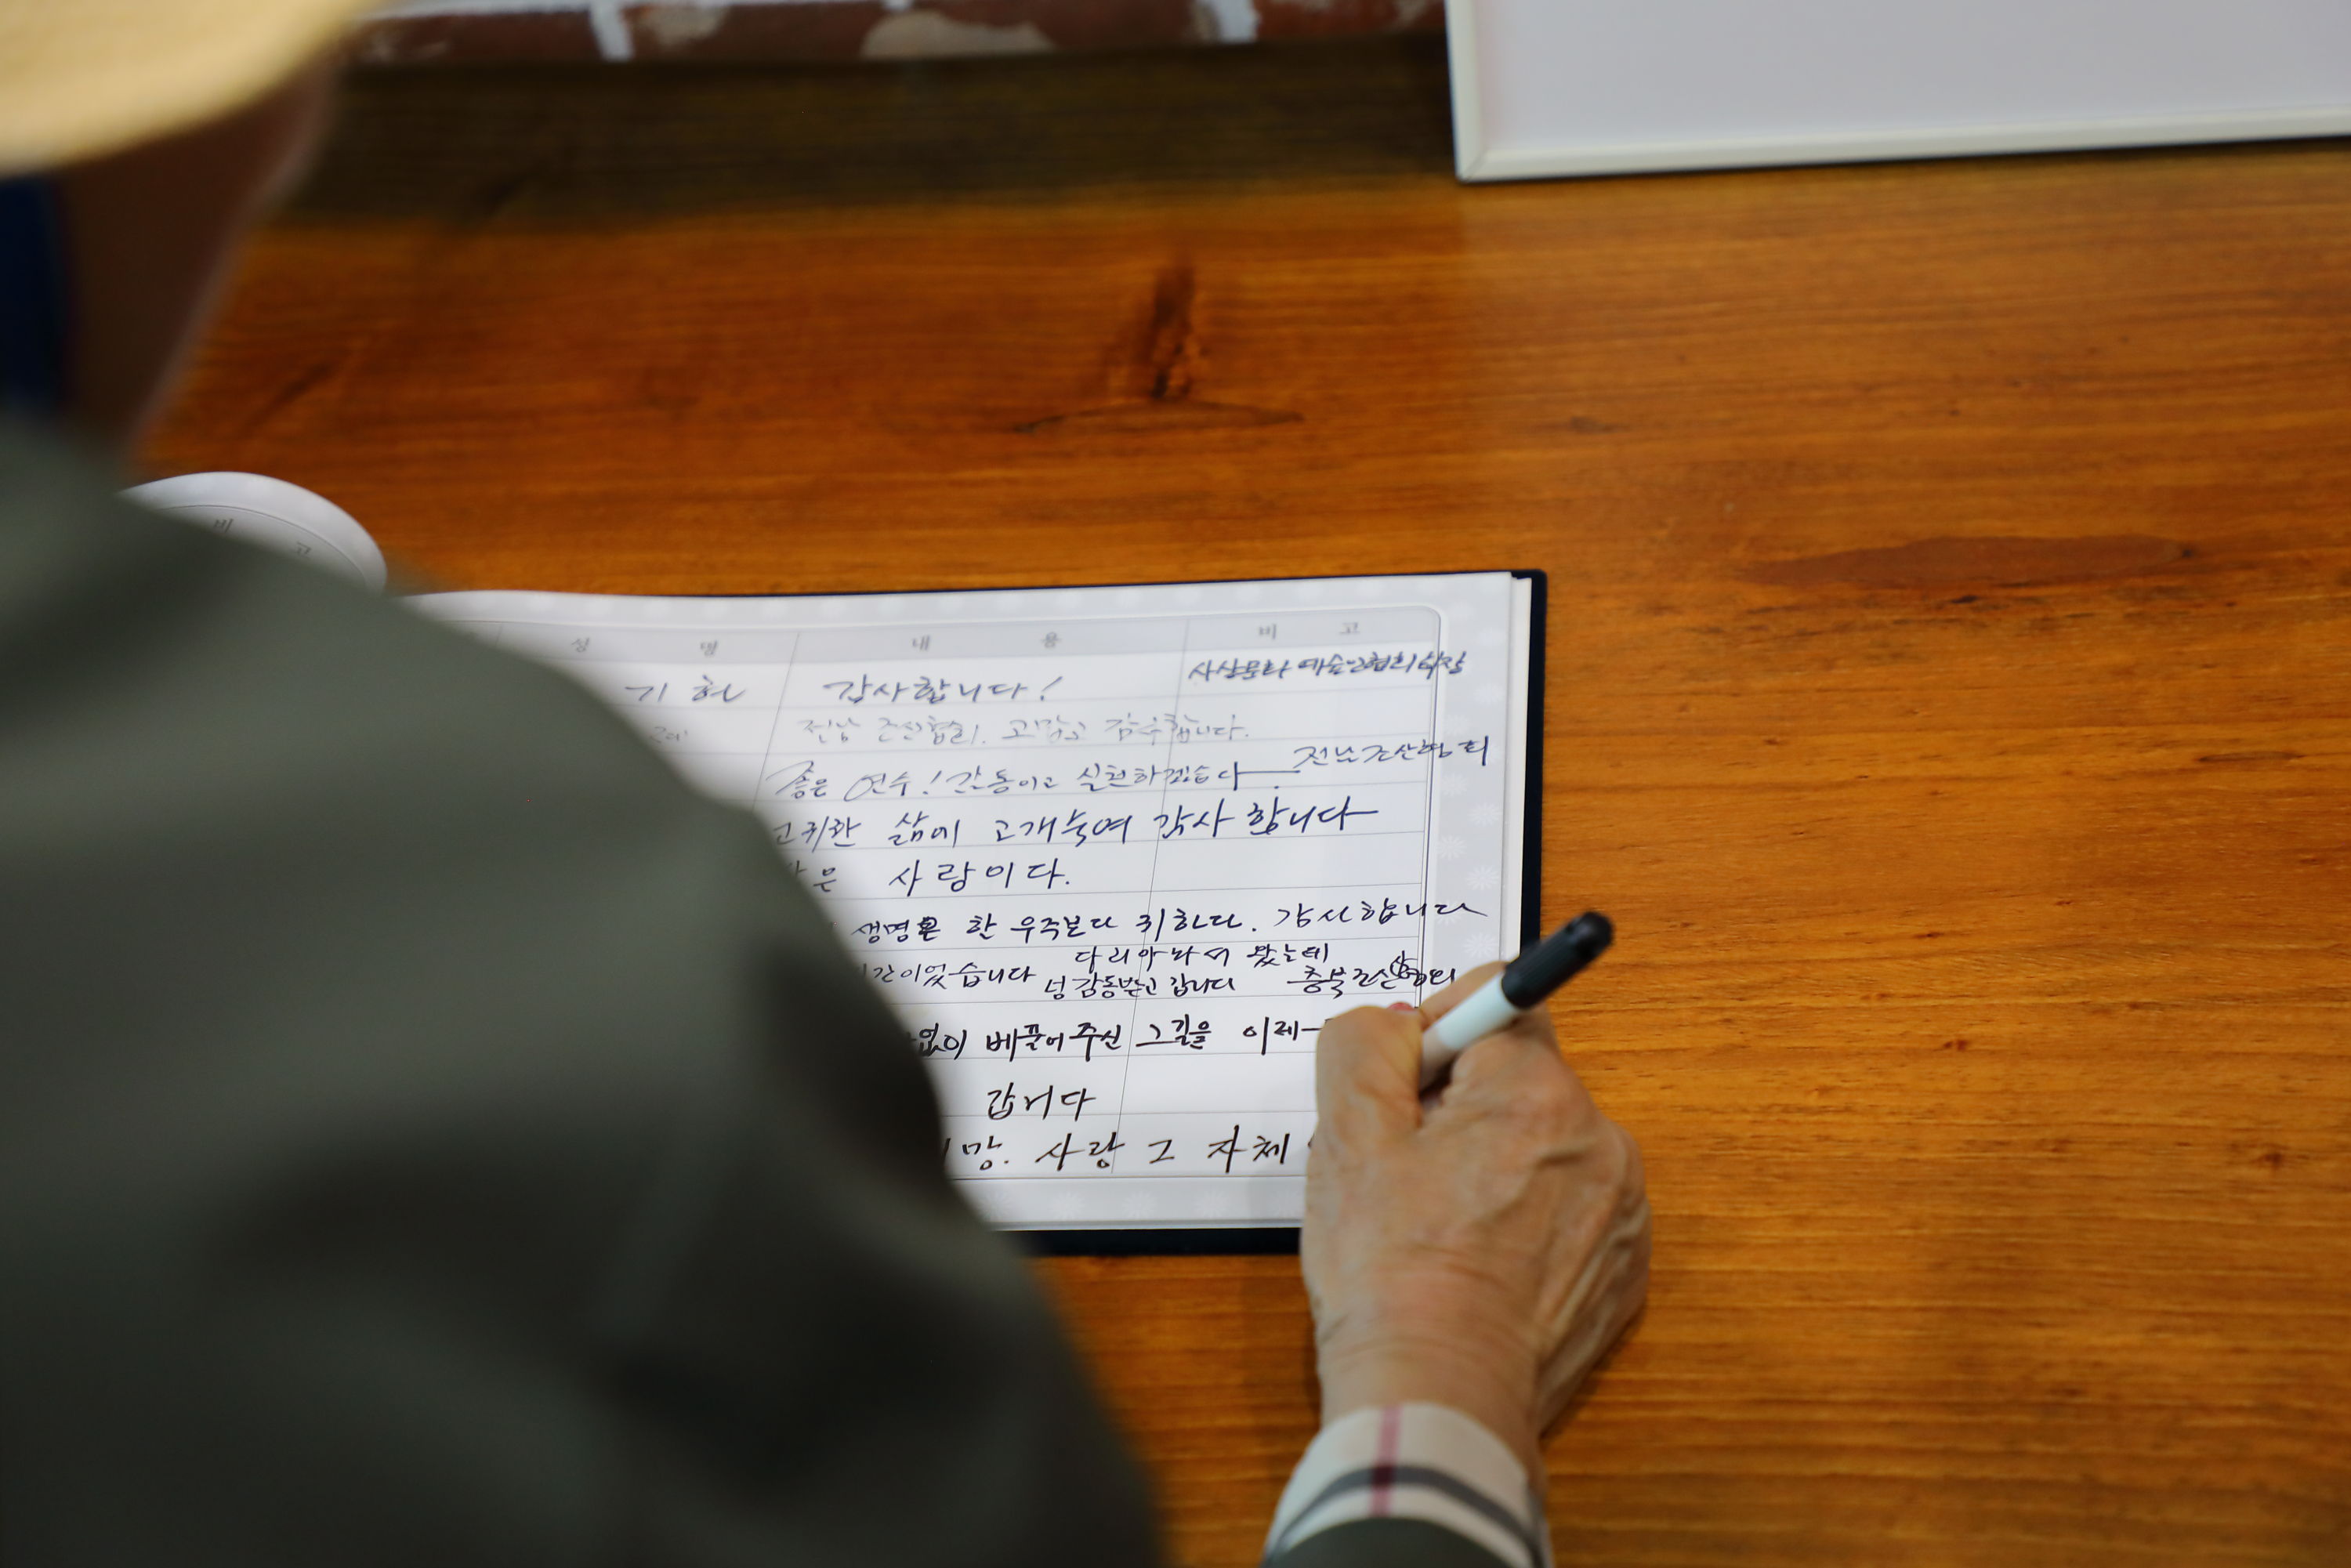 비 고
성 명 내 용 비 고
기 허 감사합니다! 사상문화 예술인협회 회장
전남 조산협회. 고맙고 감수합니다.
좋은 연수! 감동이고 실현하겠습다 전남조산협회
고귀한 삶에 고개숙여 감사 합니다
은 사랑이다.
생명은 한 우주보다 귀하다. 감사합니다
다리아파서 왔는데
이었습니다 넘 감동받고 갑니다 충북조산협회
없이 베풀어 주신 그길을 이제
갑니다
망. 사랑 그 자체